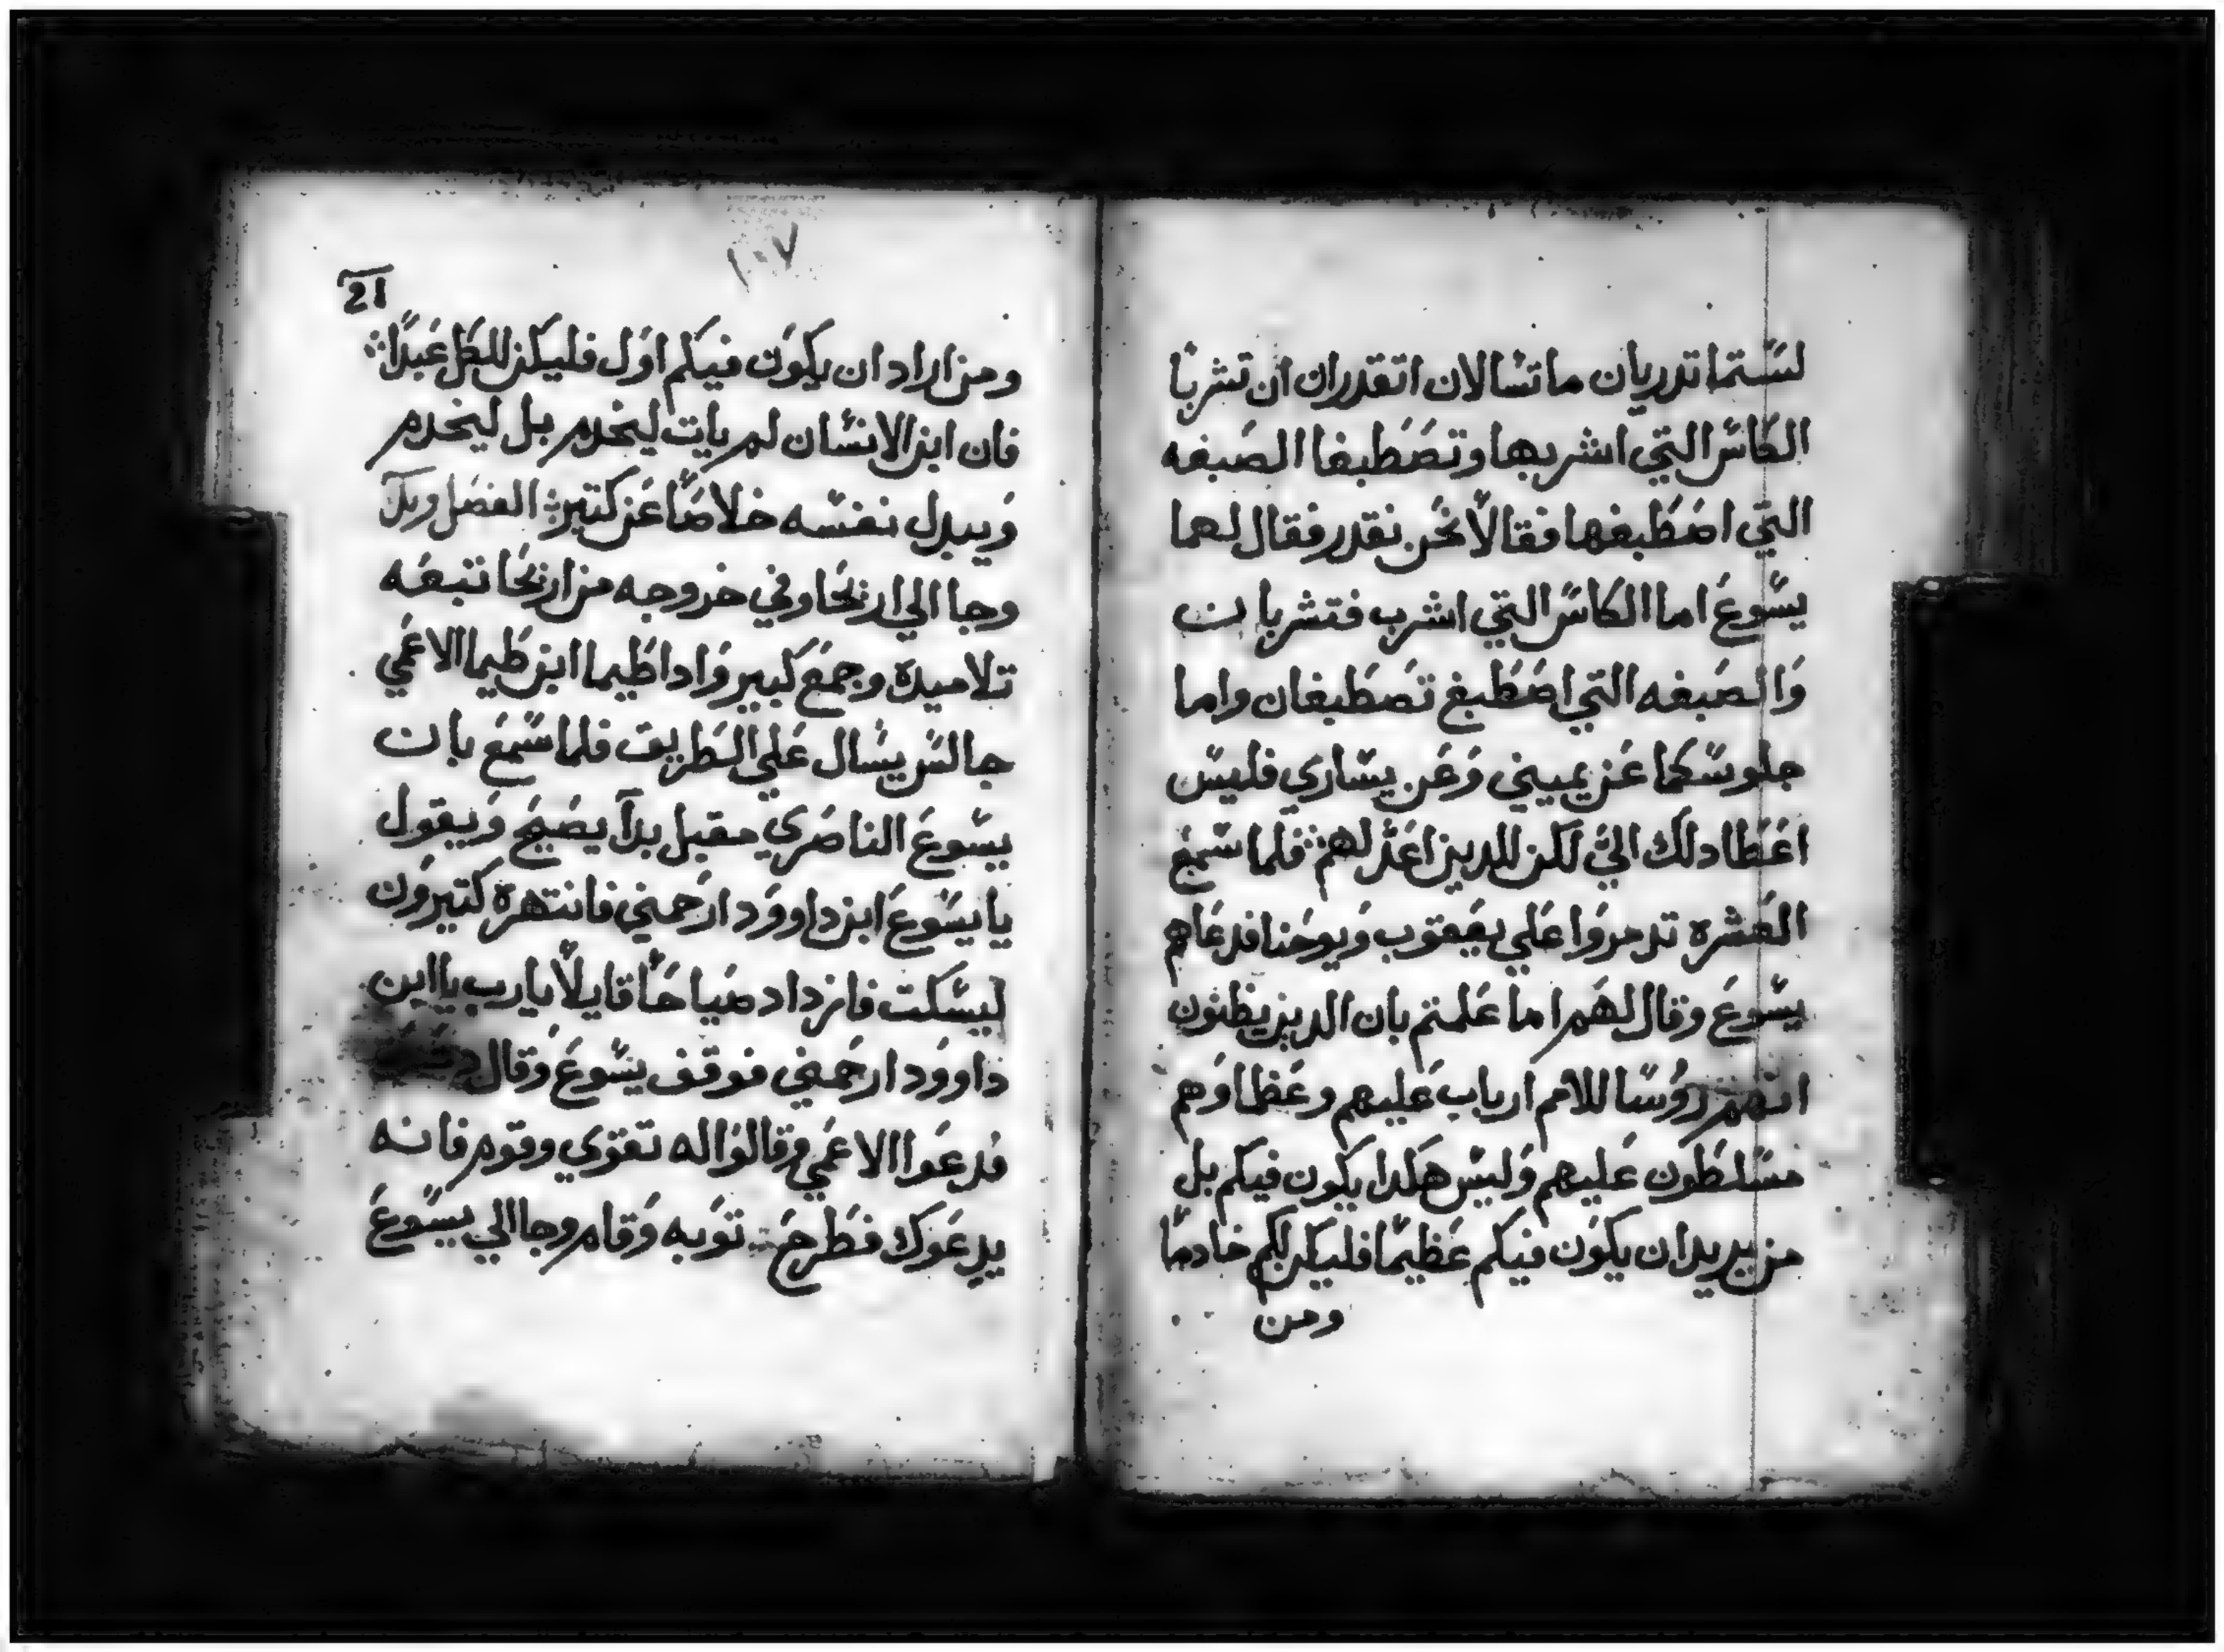 لستما تدريان ما تسالان اتقدران ان تشربا
الكاس التي اشربها وتصطبغا الصبغه
التي اصطبغها فقالا نحن نقدر فقال لهما
يسوع اما الكاس التي اشرب فتشربان
والصبغه التي اصطبغ تصطبغان واما
جلوسكما عن يميني وعن يساري فليس
اعطا دلك الي لكن للدين اعد لهم فلما سمع
العشره تدمروا علي يعقوب ويوحنا فدعاهم
يسوع وقال لهم اما علمتم بان الدين يظنون
انهم روسا للامم ارباب عليهم وعظماوهم
مسلطون عليهم وليس هكدا يكون فيكم بل
من يريد ان يكون فيكم عظيما فليكن لكم خادما
ومن
١٠٧
ومن اراد ان يكون فيكم اول فليكن للكل عبدا
فان ابن الانسان لم يات ليخدم بل ليخدم
ويبدل نفسه خلاصا عن كتير الفصل
وجا الي اريحا وفي خروجه من اريحا تتبعه
تلاميده وجمع كبير وادا طيما ابن طيما الاعمي
جالس يسال علي الطريق فلما سمع بان
يسوع الناصري مقبل بدا يصيح ويقول
يا يسوع ابن داوود ارحمني فانتهره كتيرون
ليسكت فازداد صياحا قايلا يا رب يا ابن
داوود ارحمني فوقف يسوع وقال
فدعوا الاعمي وقالوا له تقوي وقوم فانه
يدعوك فطرح توبه وقام وجا الي يسوع